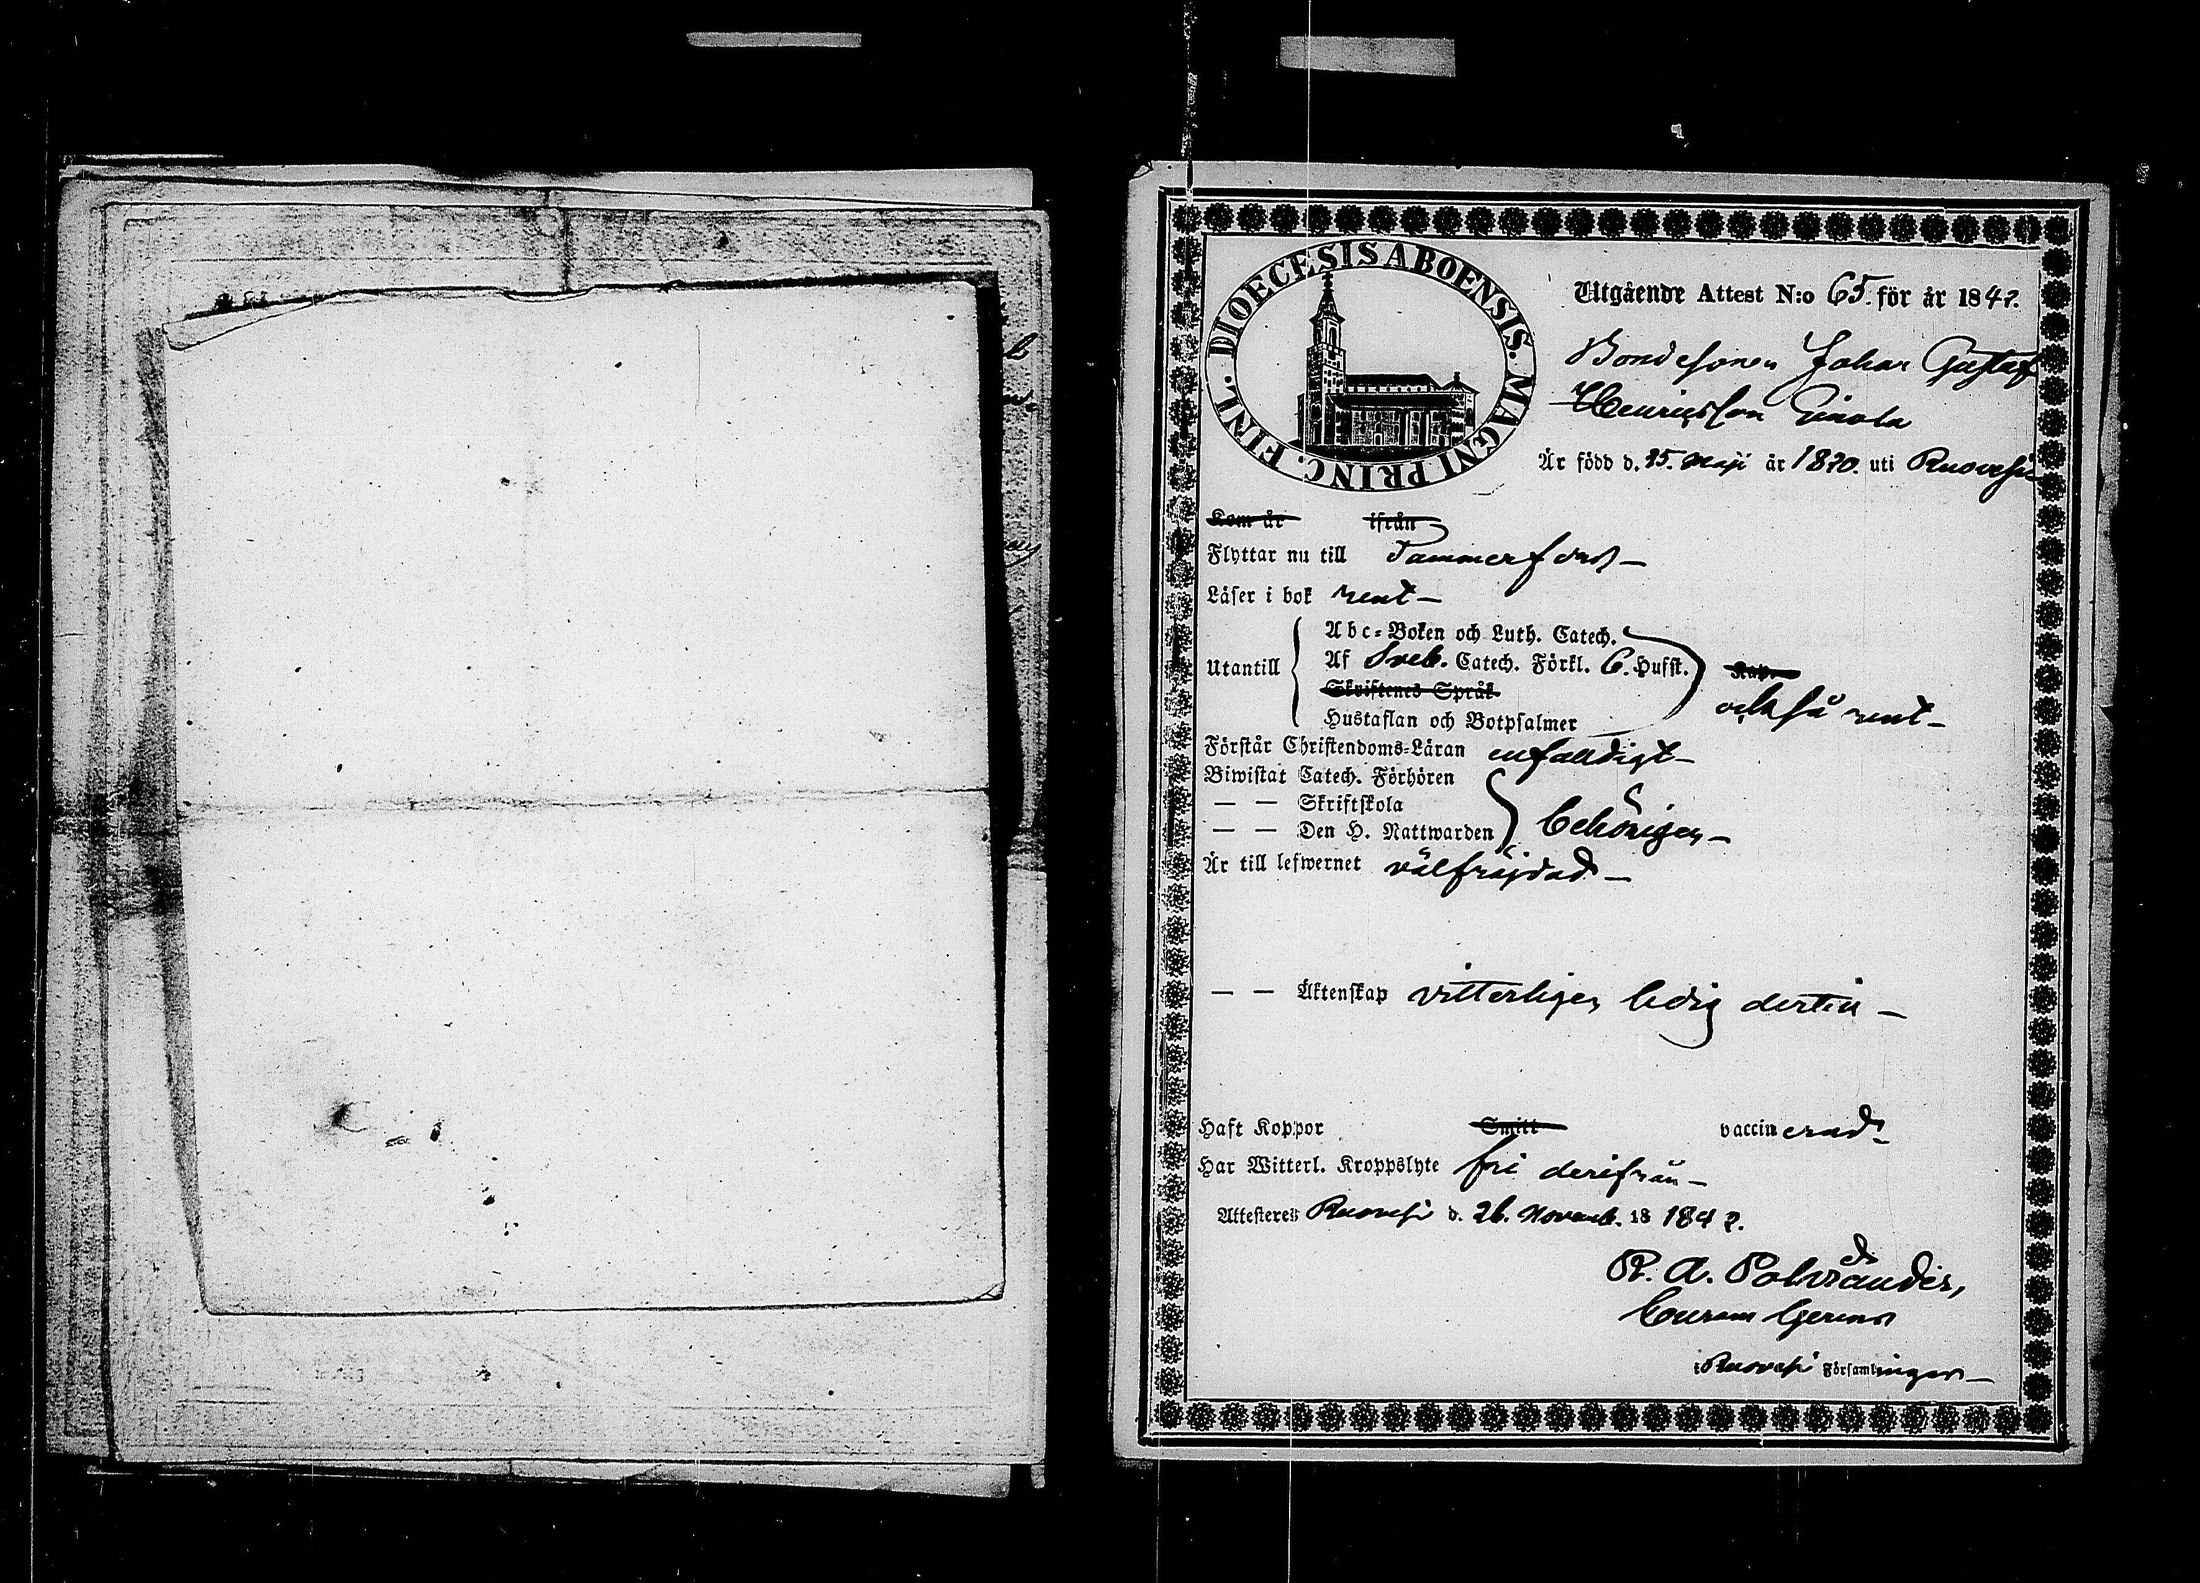 DIOECESIS ABOENSIS. MAGNI PRINC. FINL.
Utgående Attest N:o 65. för år 1842.
Bondesonen Johan Gustaf
Henricsson
Är född d. 25. Maji år 1820. uti Ruovesi
Kom år ifrån
Flyttar nu till Tammerfors –
Läser i bok rent –
Utantill
Abc-Boken och Luth. Catech.
Af Sveb. Catech. Förkl. 6. Hufst.
Skriftenes Språk
Hustaflan och Botpsalmer
också rent –
Förstår Christendoms-Läran enfaldigt –
Biwistat Catech. Förhören
— — Skriftskola
— — Den H. Nattwarden
behörigen –
Är till lefwernet välfräjdad –
— — Äktenskap vitterligen ledig dertill –
Haft Koppor Smitt vaccinerad –
Har Witterl. Kroppslyte fri derifrån –
Attesteres Ruovesi d. 26. Novemb. 18 1842.
R. A.
i Ruovesi Församlingen –